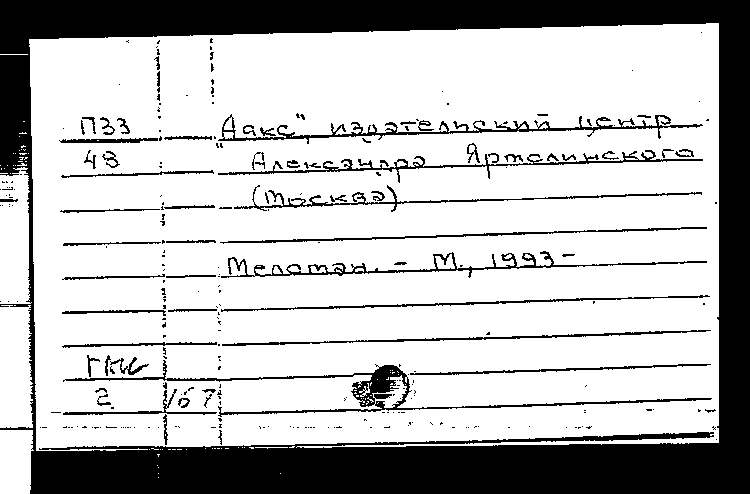 П33 "Аакс", издательский центр
48 Александра Ярмолинского
(Москва)
Меломан. - М., 1993-
2 167